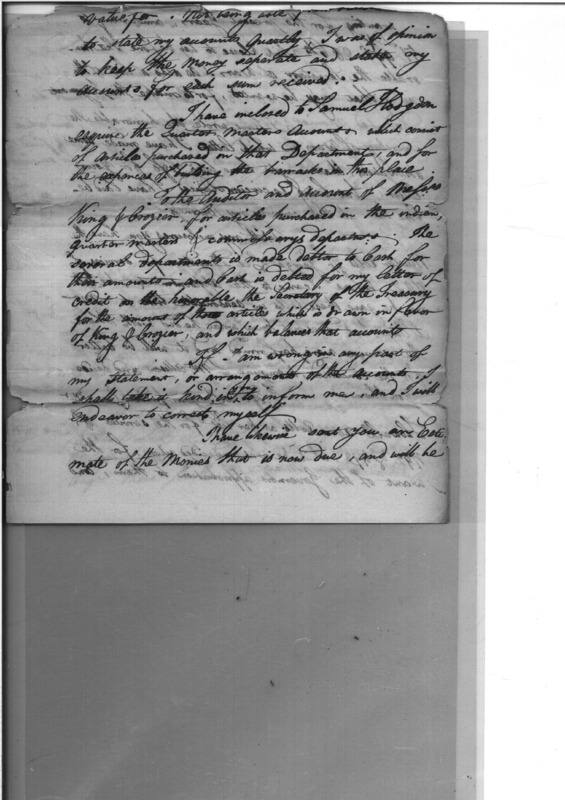 value for . Not being able
to state my accounts Quartly I was of opinion
to keep the money separate and state my
accounts for each sum received.
I have inclosed to Samuel Hodgdon
esquire the Quarter Masters Accounts which consist
of Articles purchased in that Department, and for
the expences of building the barracks in this place
To the Auditor and Account of Messrs
King & Crozier, for articles purchased in the indian,
quarter masters & commissarys departmts. The
several departments is made debtor to Cash for
their amounts and Cash is debted for my letter of
credit on the honorable the Secretary of the Treasury
for the amount of those articles which is drawn in favor
of King & Crozier, and which balances that account
If I am wrong in any part of
my statement, or arrangement of the accounts, I
shall take it kind in you to inform me, and I will
Endeavor to correct myself
I have likewise sent you an Este
mate of the Monies that is now due, and will be